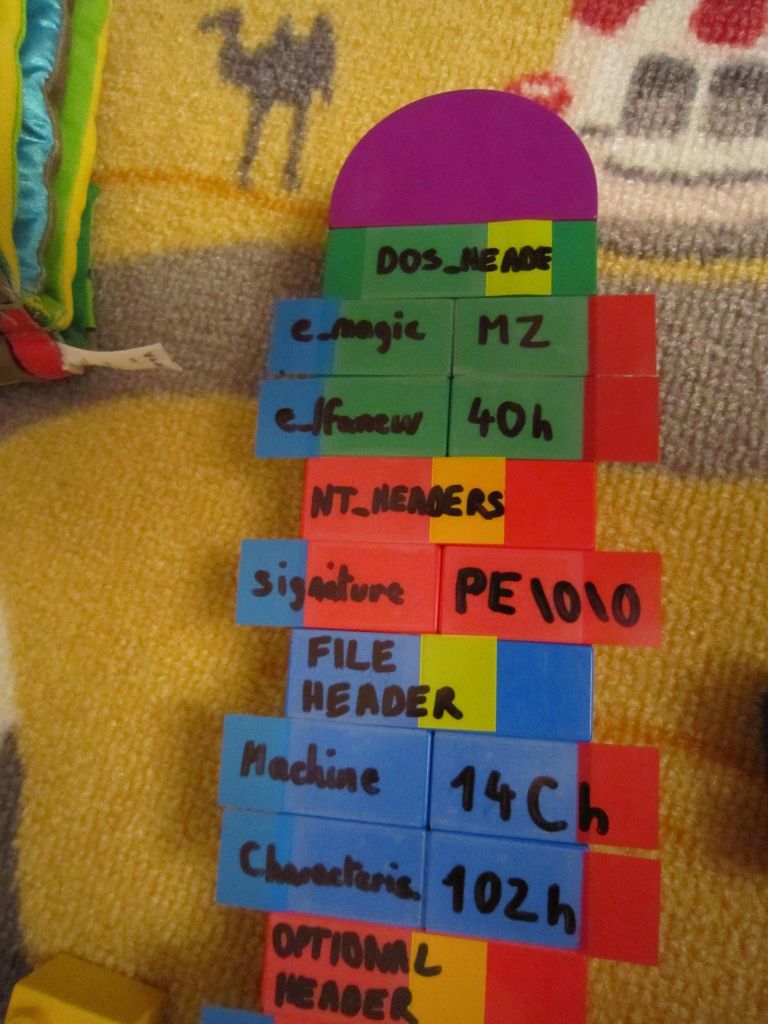 DOS_HEADE
e_magic MZ
e_lfanew 40h
NT_HEADERS
signature PE\0\0
FILE
HEADER
Machine 14Ch
Characteris. 102h
OPTIONAL
HEADER